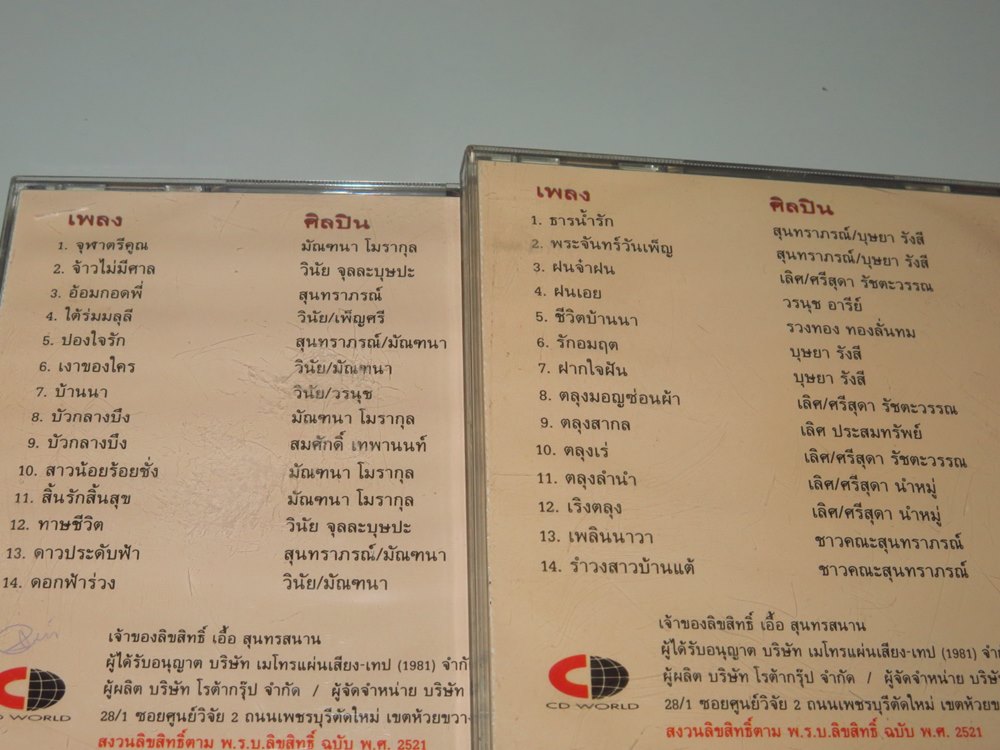 เพลง ศิลปิน
1. จุฬาตรีคูณ มัณฑนา โมรากุล
2. จ้าวไม่มีศาล วินัย จุลละบุษปะ
3. อ้อมกอดพี่ สุนทราภรณ์
4. ใต้ร่มมลุลี วินัย/เพ็ญศรี
5. ปองใจรัก สุนทราภรณ์/มัณฑนา
6. เงาของใคร วินัย/มัณฑนา
7. บ้านนา วินัย/วรนุช
8. บัวกลางบึง มัณฑนา โมรากุล
9. บัวกลางบึง สมศักดิ์ เทพานนท์
10. สาวน้อยร้อยชั่ง มัณฑนา โมรากุล
11. สิ้นรักสิ้นสุข มัณฑนา โมรากุล
12. ทาษชีวิต วินัย จุลละบุษปะ
13. ดาวประดับฟ้า สุนทราภรณ์/มัณฑนา
14. ดอกฟ้าร่วง วินัย/มัณฑนา
เจ้าของลิขสิทธิ์ เอื้อ สุนทรสนาน
ผู้ได้รับอนุญาต บริษัท เมโทรแผ่นเสียง-เทป (1981) จำกั
ผู้ผลิต บริษัท โรต้ากรุ๊ป จำกัด / ผู้จัดจำหน่าย บริษัท
28/1 ซอยศูนย์วิจัย 2 ถนนเพชรบุรีตัดใหม่ เขตห้วยขวา
สงวนลิขสิทธิ์ตาม พ.ร.บ.ลิขสิทธิ์ ฉบับ พ.ศ. 2521
D WORLD
เพลง ศิลปิน
1. ธารน้ำรัก สุนทราภรณ์/บุษยา รังสี
2. พระจันทร์วันเพ็ญ สุนทราภรณ์/บุษยา รังสี
3. ฝนจ๋าฝน เลิศ/ศรีสุดา รัชตะวรรณ
4. ฝนเอย วรนุช อารีย์
5. ชีวิตบ้านนา รวงทอง ทองลั่นทม
6. รักอมฤต บุษยา รังสี
7. ฝากใจฝัน บุษยา รังสี
8. ตลุงมอญซ่อนผ้า เลิศ/ศรีสุดา รัชตะวรรณ
9. ตลุงสากล เลิศ ประสมทรัพย์
10. ตลุงเร่ เลิศ/ศรีสุดา รัชตะวรรณ
11. ตลุงลำนำ เลิศ/ศรีสุดา นำหมู่
12. เริงตลุง เลิศ/ศรีสุดา นำหมู่
13. เพลินนาวา ชาวคณะสุนทราภรณ์
14. รำวงสาวบ้านแต้ ชาวคณะสุนทราภรณ์
เจ้าของลิขสิทธิ์ เอื้อ สุนทรสนาน
ผู้ได้รับอนุญาต บริษัท เมโทรแผ่นเสียง-เทป (1981) จำก
ผู้ผลิต บริษัท โรต้ากรุ๊ป จำกัด / ผู้จัดจำหน่าย บริษัท
28/1 ซอยศูนย์วิจัย 2 ถนนเพชรบุรีตัดใหม่ เขตห้วยข
สงวนลิขสิทธิ์ตาม พ.ร.บ.ลิขสิทธิ์ ฉบับ พ.ศ. 2521
CD WORLD